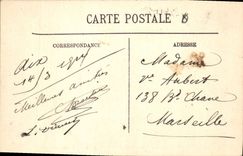 CARTE POSTALE
CORRESPONDANCE
ADRESSE
Aix
14/3 1917
Meilleures amitiés
Madame
Vve Aubert
138 Bd Chave
Marseille